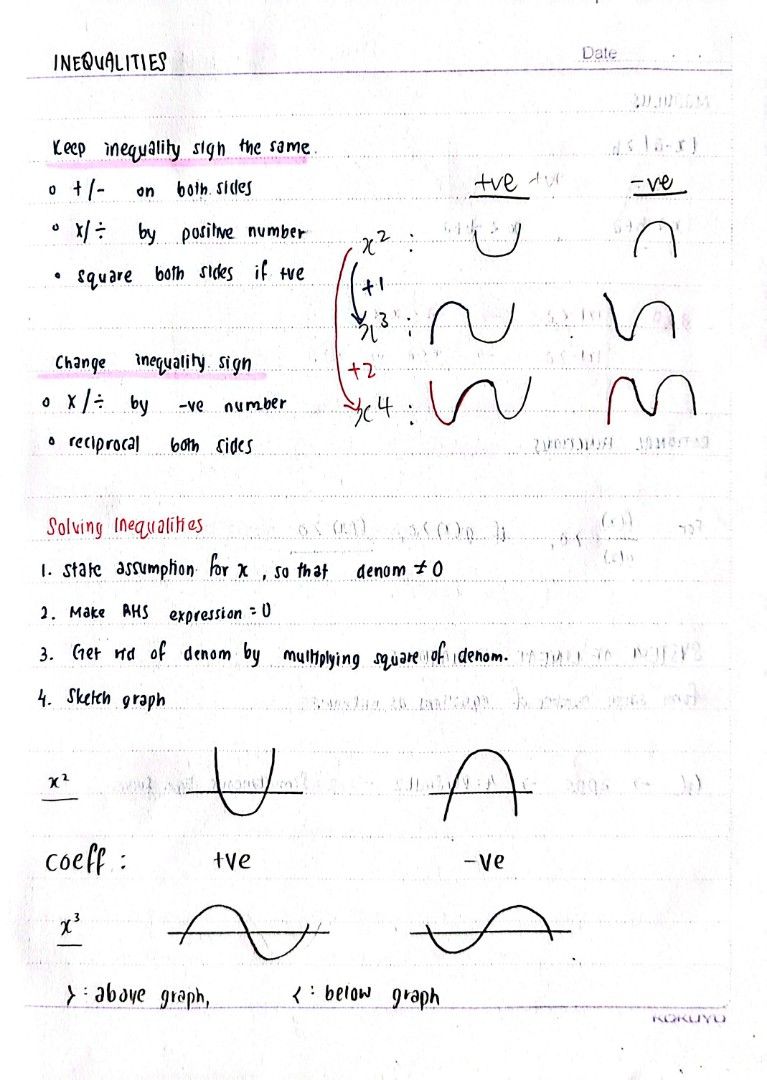 INEQUALITIES
Date
Keep inequality sign the same.
+/- on both sides
x/÷ by positive number
square both sides if +ve
Change inequality sign
x/÷ by -ve number
reciprocal both sides
+ve -ve
x² :
+1
x³ :
+2
x⁴ :
Solving Inequalities
1. state assumption for x , so that denom ≠ 0
2. Make RHS expression = 0
3. Get rid of denom by multiplying square of denom.
4. Sketch graph
x²
coeff : +ve -ve
x³
> : above graph, < : below graph
KOKUYO